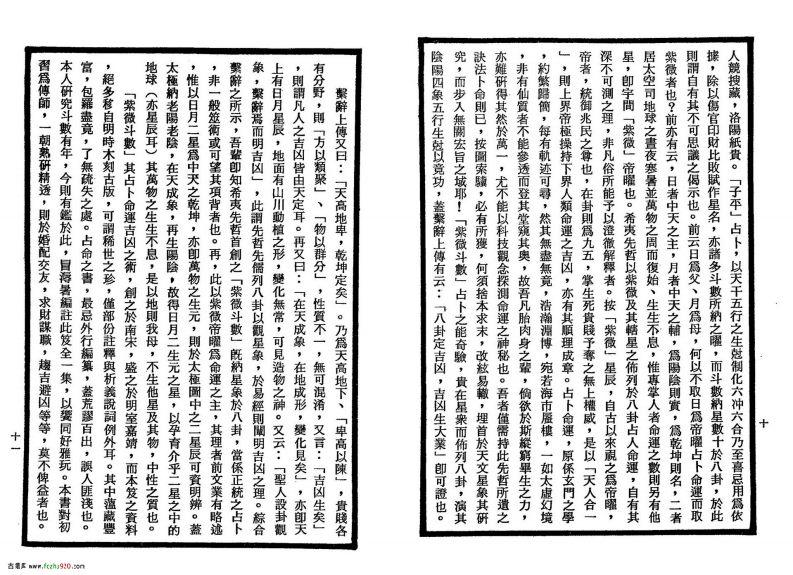 人競搜藏，洛陽紙貴。「子平」占卜，以天干五行之生尅制化六冲六合乃至喜忌用為依
據，除以傷官印財比敗賦作星名，亦諸多斗數所納之曜，而斗數納星數十於八卦，於此
則謂自有其不可思議之偈示也。前云日為父、月為母，何以不取日為帝曜占卜命運而取
紫微者也？前亦有云，日者中天之主，月者中天之輔，為陽陰則實，為乾坤則名，二者
居太空司地球之晝夜寒暑並萬物之周而復始、生生不息，惟專掌人者命運之數則另有他
星，卽字間「紫微」帝曜也。希夷先哲以紫微及其轄星之佈列於八卦占人命運，自有其
深不可測之理，非凡俗所能予以澄微解釋者。按「紫微」星辰，自古以來視之爲帝曜，
帝者，統御兆民之尊也，在卦則為九五，掌生死貴賤予奪之無上權威，是以「天人合一
」，則上界帝極操持下界人類命運之吉凶，亦有其順理成章。占卜命運，原係玄門之學
，約繁歸簡，每有軌迹可尋，然其無盡無竟，浩瀚淵博，宛若海市蜃樓，一如太虛幻境
，非有仙質者不能參透而登其堂窺其奧，故吾凡胎肉身之輩，倘欲於斯縱窮畢生之力，
亦難研得其然於萬一，尤不能以科技觀念探測命運之神秘也。吾者僅需持此先哲所遺之
訣法卜命則已，按圖索驥，必有所獲，何須捨本求末，改絃易轍，埋首於天文星象其研
究，而步入無關宏旨之域耶！「紫微斗數」占卜之能奇驗，貴在星衆而佈列八卦，演其
陰陽四象五行生尅以竟功，蓋繫辭上傳有云：「八卦定吉凶，吉凶生大業」卽可證也。
十
繫辭上傳又曰：「天高地卑，乾坤定矣」。乃為天高地下、「卑高以陳」，貴賤各
有分野，則「方以類聚」、「物以群分」，性質不一，無可混淆，又言：「吉凶生矣」
，則謂凡人之吉凶皆由天定耳。再又曰：「在天成象，在地成形，變化見矣」，亦卽天
上有日月星辰，地面有山川動植之形，變化無常，可見造物之神。又云：「聖人設卦觀
象，繫辭焉而明吉凶」，此謂先哲先儒列八卦以觀星象，於易經則闡明吉凶之理。綜合
繫辭之所示，吾輩卽知希夷先哲首創之「紫微斗數」既納星象於八卦，當係正統之占卜
，非一般筮術或可望其項背者也。再，此以紫微帝曜爲命運之主，其理者前文業有略述
，惟以日月二星爲中天之乾坤，亦卽萬物之生元，則於太極圖中之二星辰可資明辨。蓋
太極納老陽老陰，在天成象，再生陽陰，故得日月二生元之星，以孕育介乎二星之中的
地球（亦星辰耳）其萬物之生生不息，是以地則我母，不生他星及其物，中性之質也。
「紫微斗數」其占卜命運吉凶之術，創之於南宋，盛之於明室嘉靖，而本笈之資料
，絕多移自明時木刻古版，可謂稀世之珍，僅部份註釋與析義說詞例外耳。其中蘊藏豐
富，包羅盡竟，了無疏失之處。占命之書，最忌外行編纂，蓋荒謬百出，誤人匪淺也。
本人研究斗數有年，今則有鑑於此，冒溽暑編註此笈全一集，以饗同好雅玩。本書對初
習為傳師，一朝熟研精透，則於婚配交友，求財謀職，趨吉避凶等等，莫不俾益者也。
十一
古易库 www.fozhu920.com